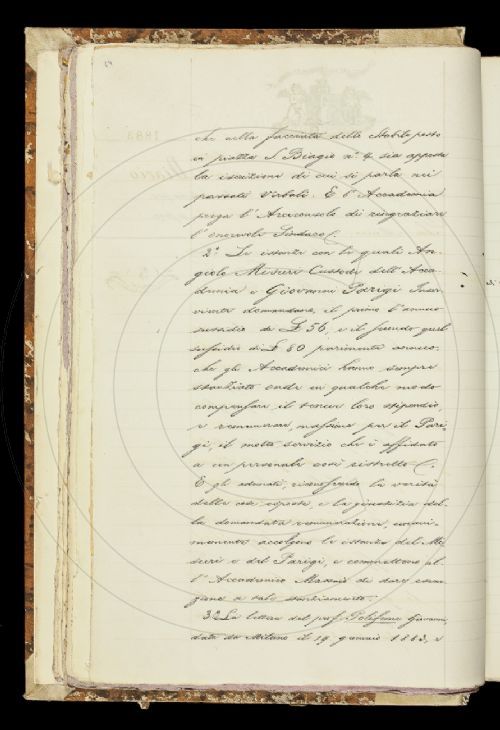 che nella facciata dello Stabile posto
in piazza S. Biagio n.° 4 sia apposta
la iscrizione di cui si parla nei
passati Verbali. E l'Accademia
prega l'Arciconsolo di ringraziare
l'onorevole Sindaco.
2.° Le istanze con le quali An-
giolo Misuri Custode dell'Acca-
demia e Giovanni Parigi Inser-
viente domandano, il primo l'annuo
sussidio di £ 56, e il secondo quel
sussidio di £ 80 parimente annuo,
che gli Accademici hanno sempre
stanziato onde in qualche modo
compensare il tenue loro stipendio,
e remunerare, massime per il Pari-
gi, il molto servizio che è affidato
a un personale così ristretto.
E gli adunati, riconoscendo la verità
delle cose esposte, e la giustizia del-
la domandata remunerazione, unani-
memente accolgono le istanze del Mi-
suri e del Parigi, e commettono al-
l'Accademico Massajo di dare esecu-
zione a tale stanziamento.
3.° La lettera del prof. Polifemo Giovanni
data da Milano il 19 gennaio 1883, e